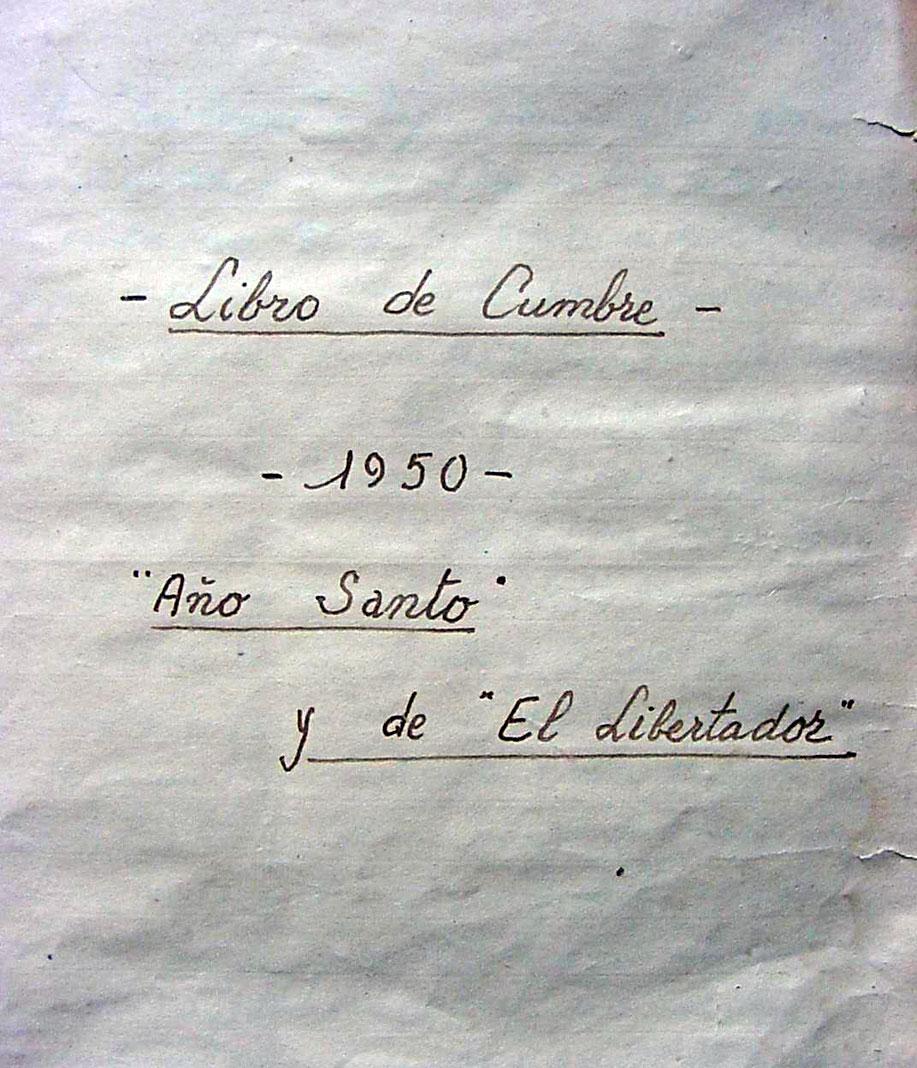 - Libro de Cumbre -
- 1950 -
"Año Santo"
y de "El Libertador"